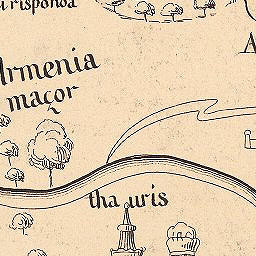 risponda
Armenia
maçor
tha uris
A